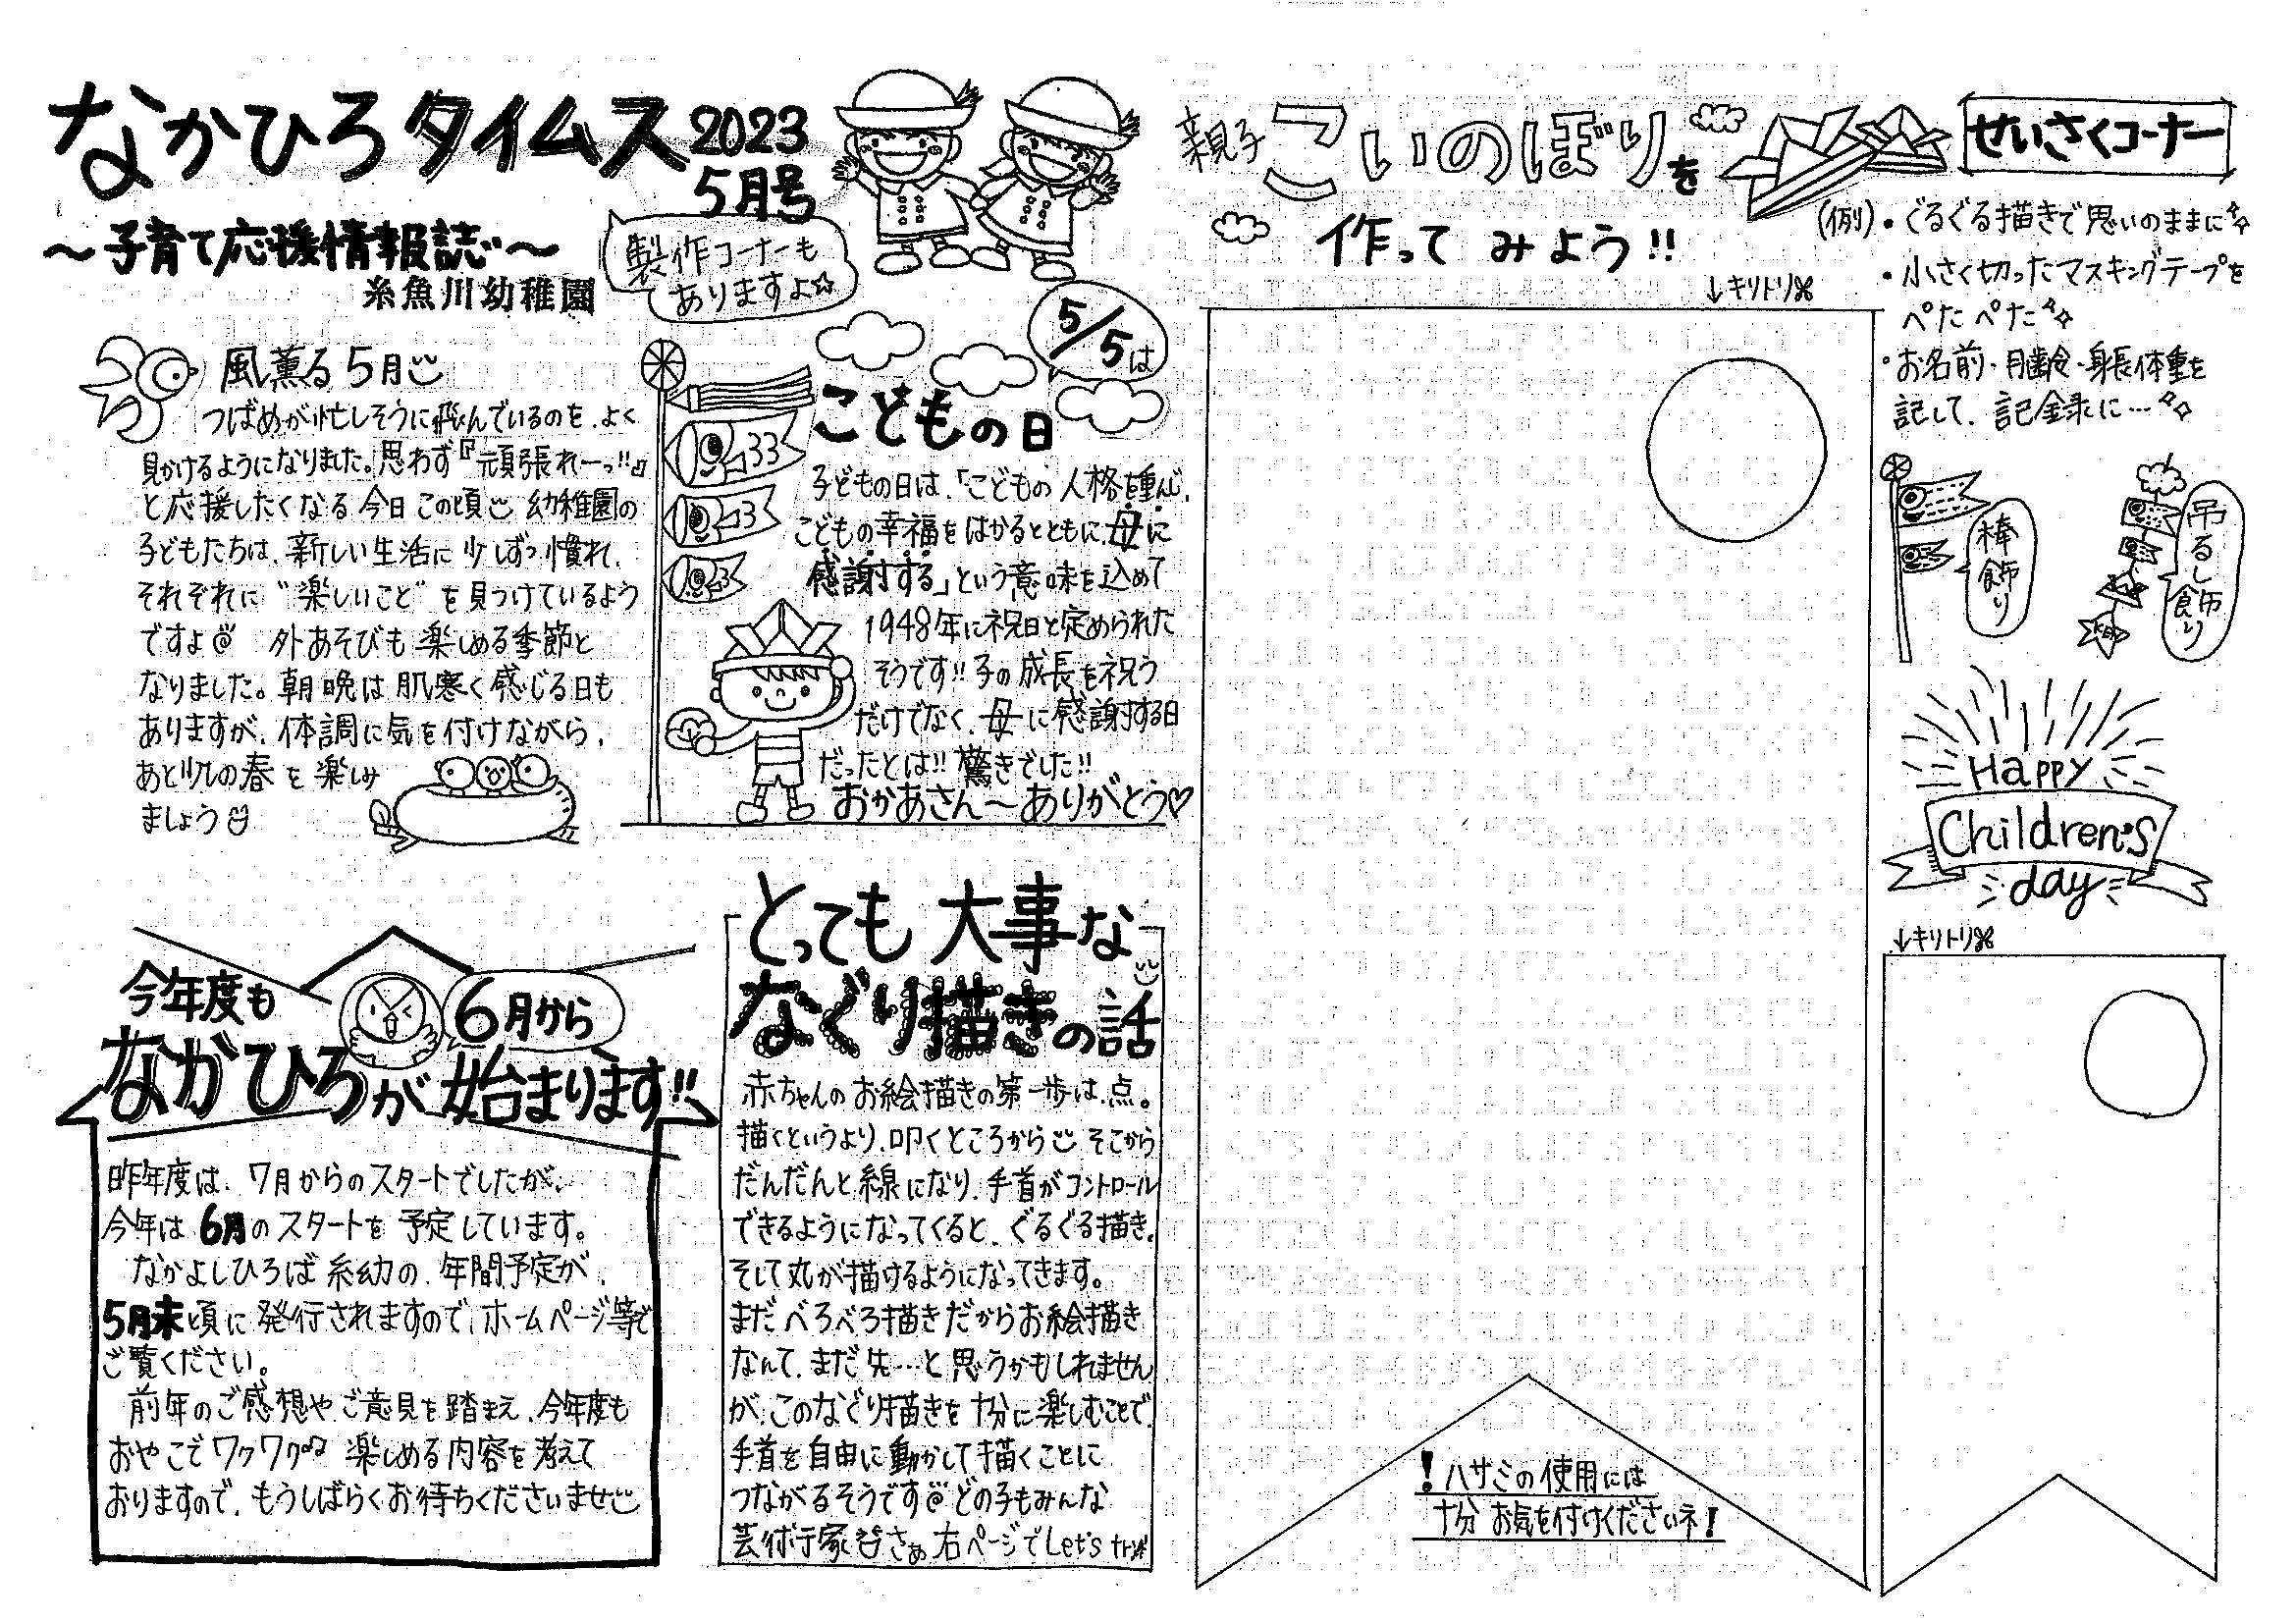 なかひろタイムス 2023 5月号
～子育て応援情報誌～
糸魚川幼稚園
製作コーナーも
ありますよ☆
風薫る5月
つばめが忙しそうに飛んでいるのを、よく
見かけるようになりました。思わず『頑張れーっ!!』
と応援したくなる今日この頃 幼稚園の
子どもたちは、新しい生活に少しずつ慣れ、
それぞれに"楽しいこと"を見つけているよう
ですよ 外あそびも楽しめる季節と
なりました。朝晩は肌寒く感じる日も
ありますが、体調に気を付けながら、
あと少しの春を楽しみ
ましょう
5/5は
こどもの日
子どもの日は、「こどもの人格を重んじ、
こどもの幸福をはかるとともに、母に
感謝する」という意味を込めて
1948年に祝日と定められた
そうです!!子の成長を祝う
だけでなく、母に感謝する日
だったとは!!驚きでした!!
おかあさん～ありがとう♡
今年度も
6月から
なかひろが始まります!!
昨年度は、7月からのスタートでしたが、
今年は6月のスタートを予定しています。
なかよしひろば糸幼の、年間予定が、
5月末頃に発行されますので、ホームページ等で
ご覧ください。
前年のご感想やご意見を踏まえ、今年度も
おやこでワクワク♫楽しめる内容を考えて
おりますので、もうしばらくお待ちくださいませ
とっても大事な
なぐり描きの話
赤ちゃんのお絵描きの第一歩は、点。
描くというより、叩くところから そこから
だんだんと線になり、手首がコントロール
できるようになってくると、ぐるぐる描き、
そして丸が描けるようになってきます。
まだべろべろ描きだからお絵描き
なんて、まだ先…と思うかもしれません
が、このなぐり描きを十分に楽しむことで、
手首を自由に動かして描くことに
つながるそうです どの子もみんな
芸術家 さぁ右ページでLet's try!
親子こいのぼりを
作ってみよう!!
せいさくコーナー
(例)・ぐるぐる描きで思いのままに
・小さく切ったマスキングテープを
ぺたぺた
・お名前・月齢・身長体重を
記して、記録に…
棒飾り
吊るし飾り
Happy
Children's
day
↓キリトリ
↓キリトリ
!ハサミの使用には
十分お気を付けくださいネ!